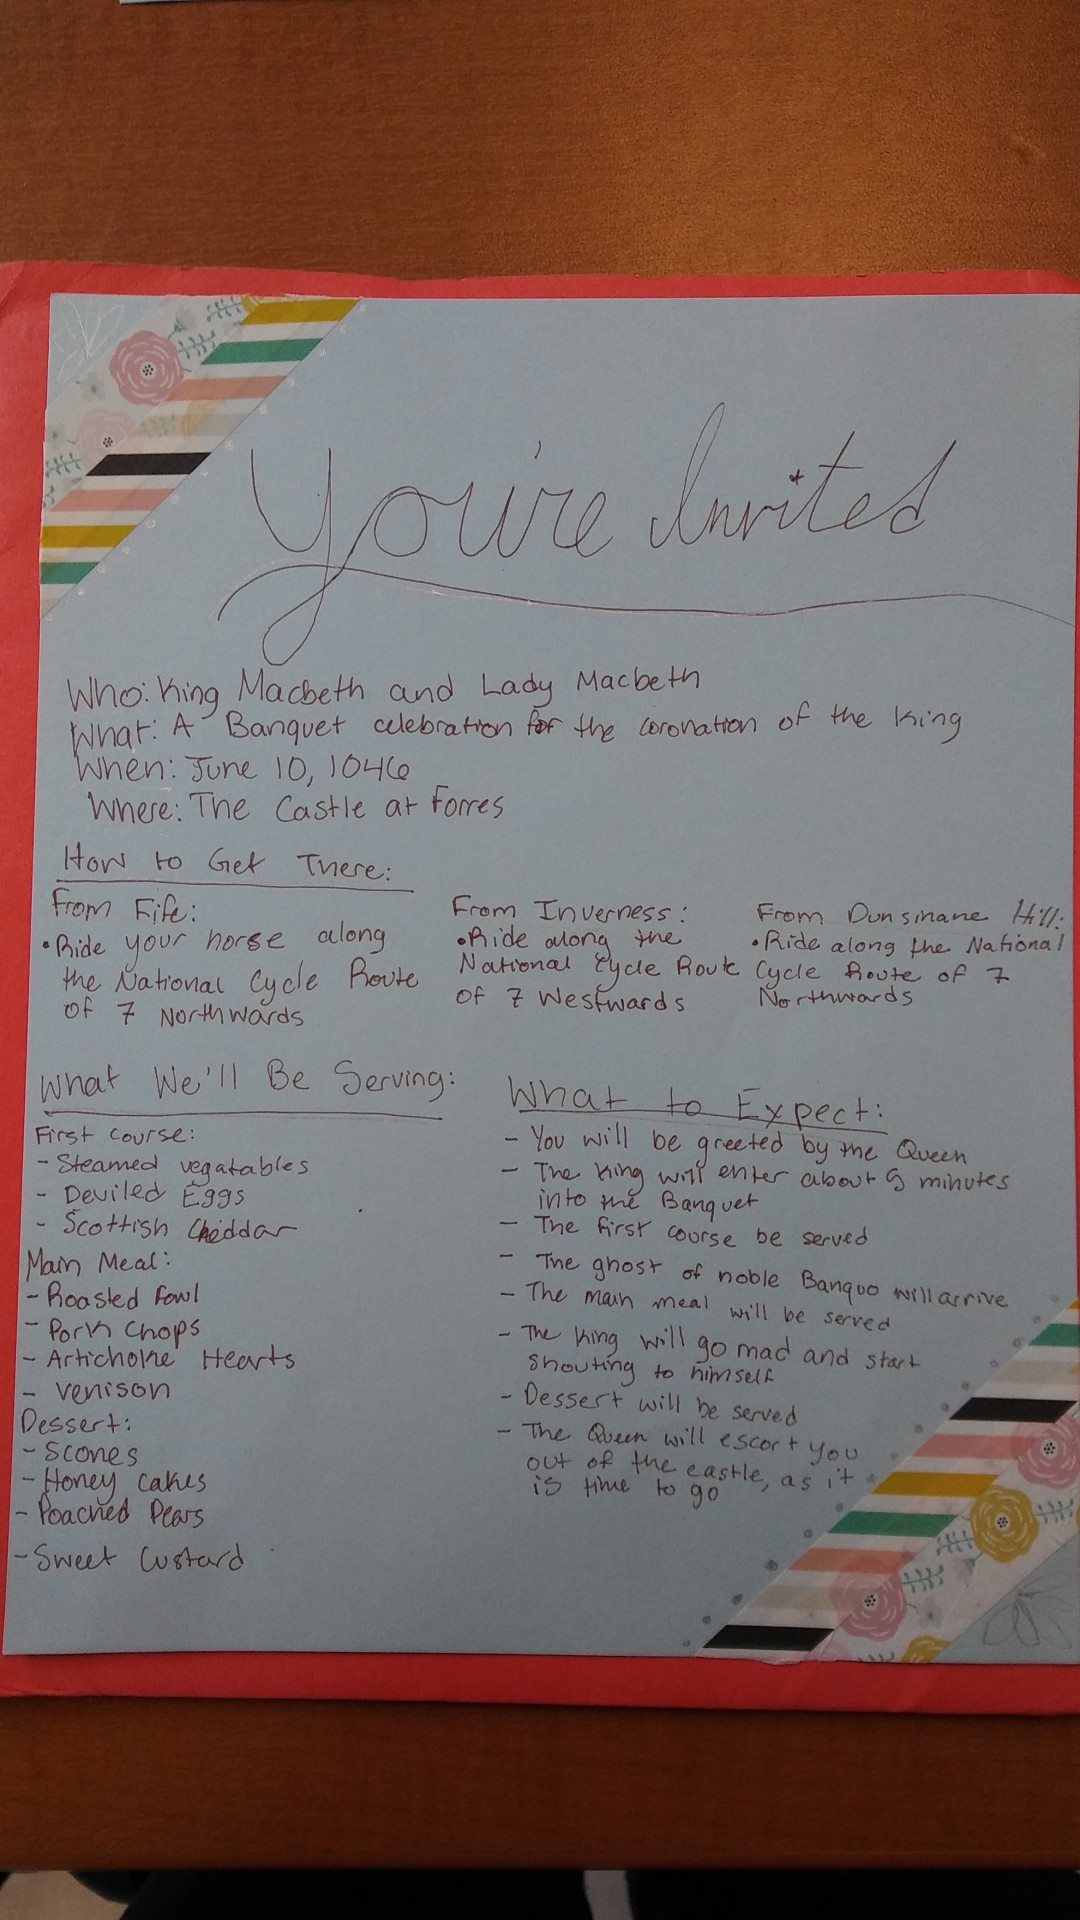 You're Invited
Who: King Macbeth and Lady Macbeth
What: A Banquet celebration for the coronation of the King
When: June 10, 1046
Where: The Castle at Forres
How to Get There:
From Fife:
• Ride your horse along
the National Cycle Route
of 7 Northwards
From Inverness:
• Ride along the
National Cycle Route
of 7 Westwards
From Dunsinane Hill:
• Ride along the National
Cycle Route of 7
Northwards
What We'll Be Serving:
First course:
- Steamed vegatables
- Deviled Eggs
- Scottish Cheddar
Main Meal:
- Roasted Fowl
- Pork Chops
- Artichoke Hearts
- Venison
Dessert:
- Scones
- Honey Cakes
- Poached Pears
- Sweet Custard
What to Expect:
- You will be greeted by the Queen
- The King will enter about 5 minutes
into the Banquet
- The first course be served
- The ghost of noble Banquo will arrive
- The main meal will be served
- The King will go mad and start
shouting to himself
- Dessert will be served
- The Queen will escort you
out of the castle, as it
is time to go